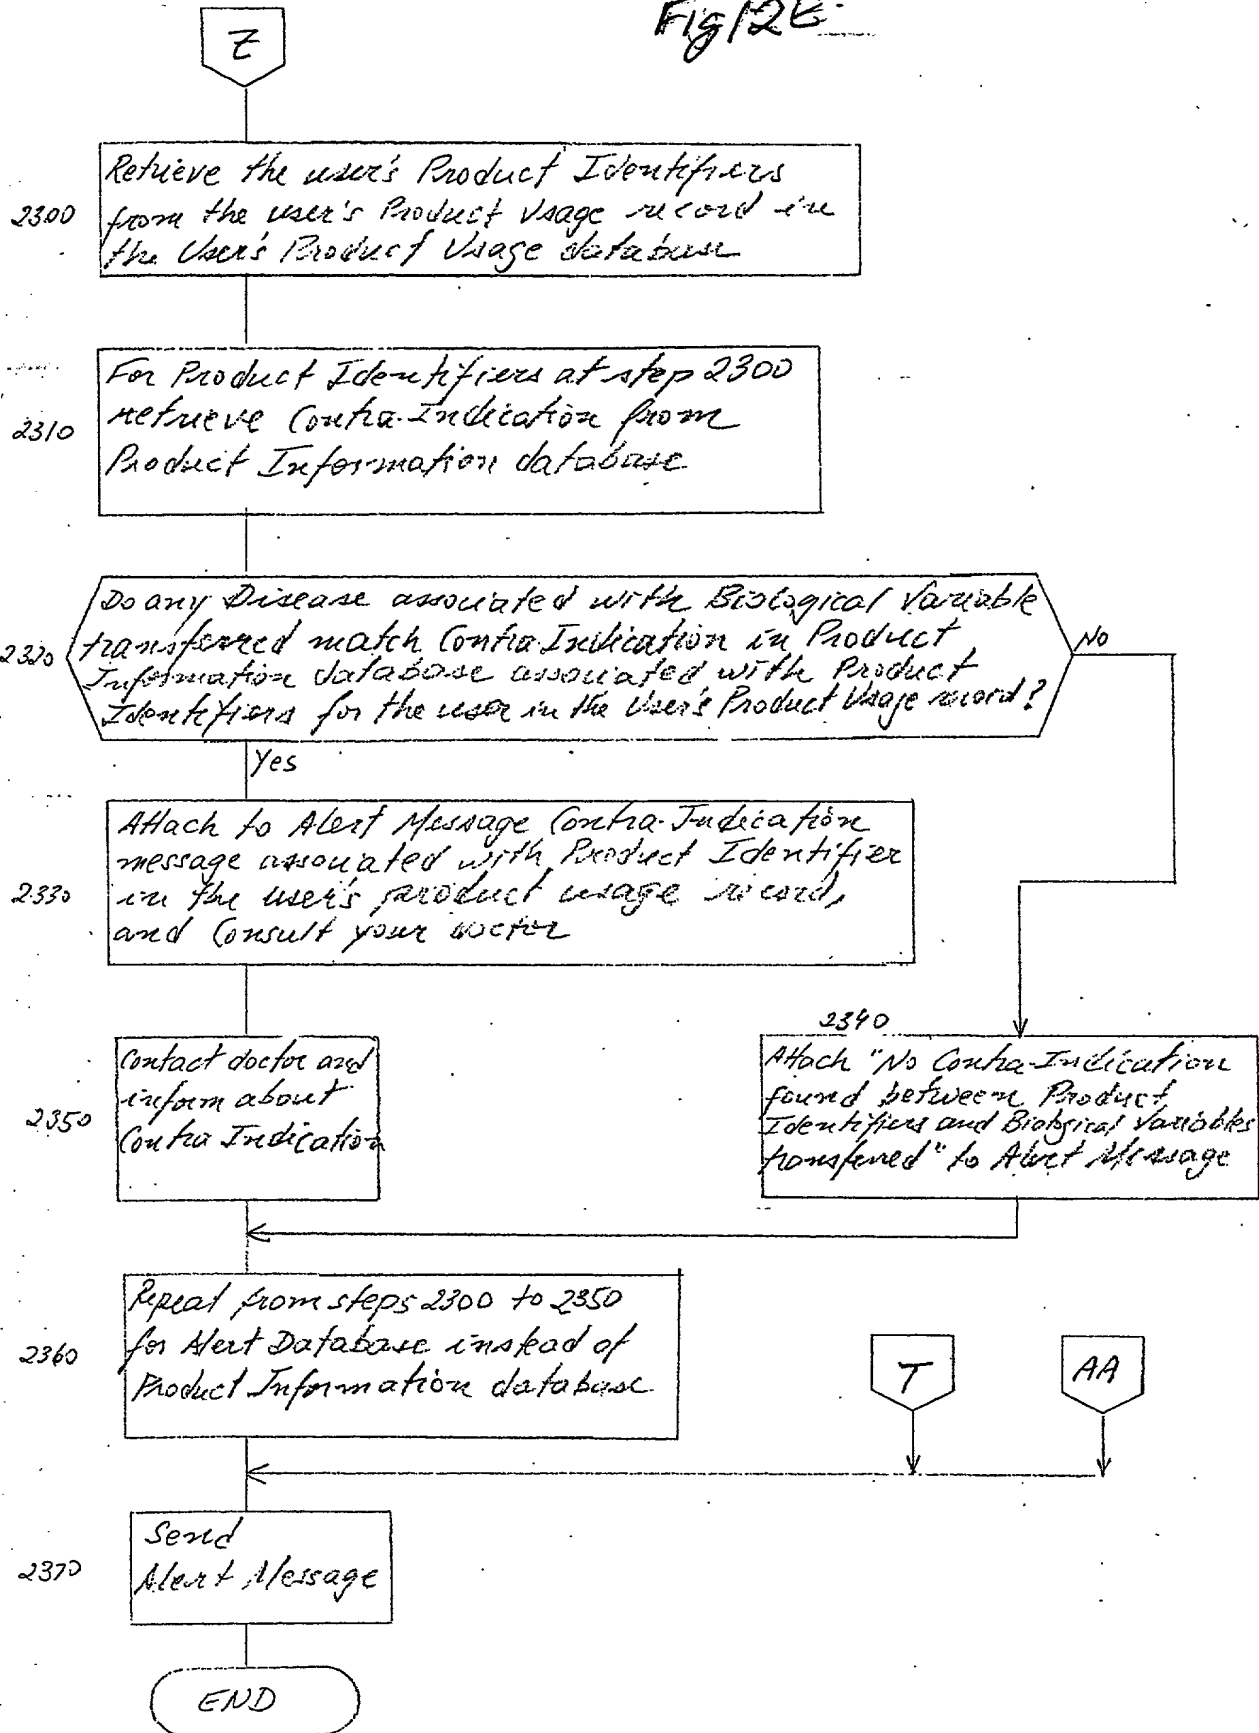 Fig 12E
Z
2300
Retrieve the user's Product Identifiers
from the user's Product Usage record in
the User's Product Usage database
2310
For Product Identifiers at step 2300
retrieve Contra-Indication from
Product Information database
2320
Do any Disease associated with Biological Variable
transferred match Contra-Indication in Product
Information database associated with Product
Identifiers for the user in the User's Product Usage record?
No
Yes
2330
Attach to Alert Message Contra-Indication
message associated with Product Identifier
in the user's product usage record,
and Consult your doctor
2340
Attach "No Contra-Indication
found between Product
Identifiers and Biological Variables
transferred" to Alert Message
2350
Contact doctor and
inform about
Contra Indication
2360
Repeat from steps 2300 to 2350
for Alert Database instead of
Product Information database
T
AA
2370
Send
Alert Message
END